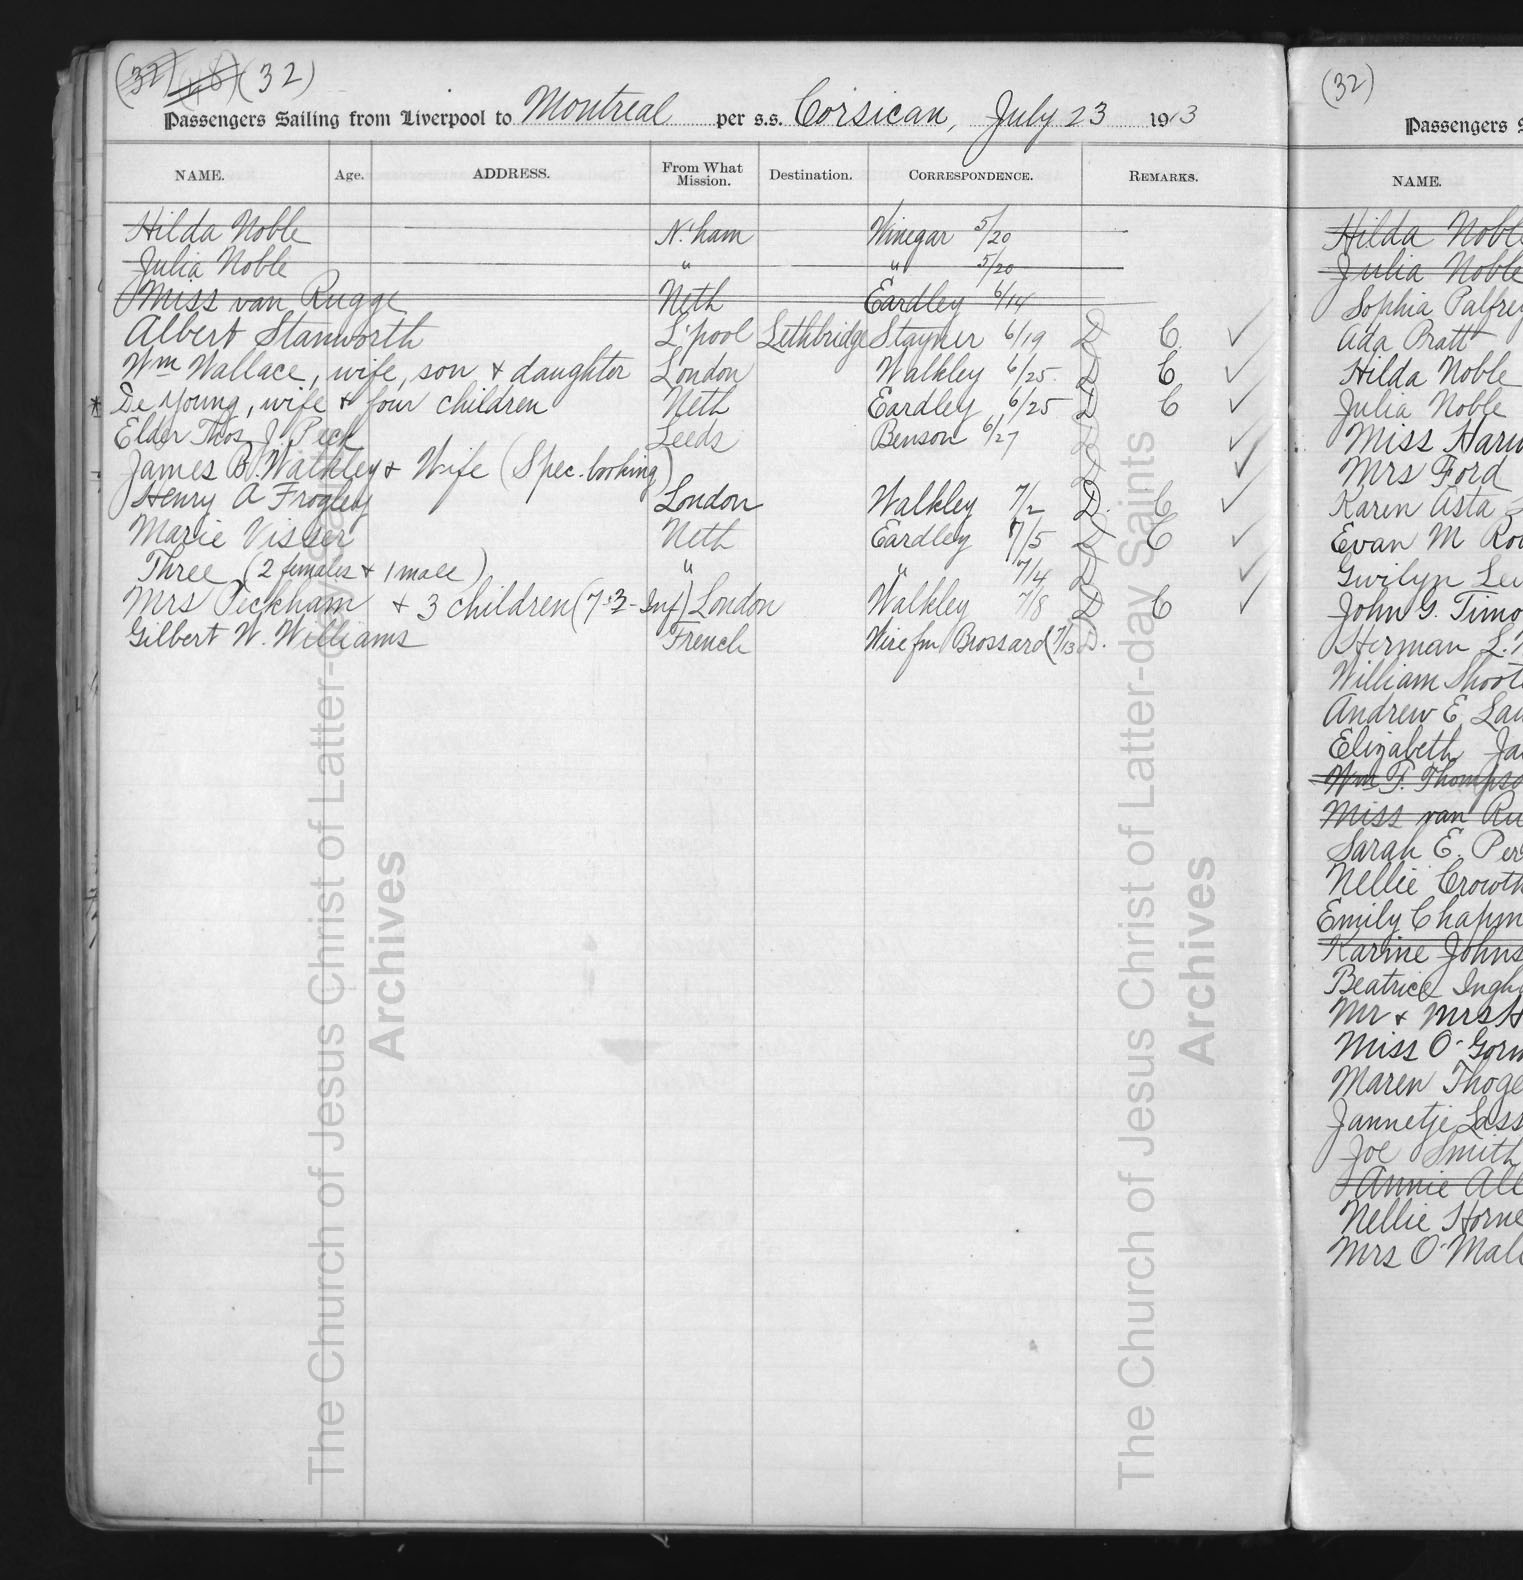 (32) (48) (32)
Passengers Sailing from Liverpool to Montreal per s.s. Corsican, July 23 1913
NAME. Age. ADDRESS. From What Mission. Destination. CORRESPONDENCE. REMARKS.
Hilda Noble N'ham Winegar 5/20
Julia Noble " " 5/20
Miss van Rugge Neth Eardley 6/14
Albert Stanworth L'pool Lethbridge Stayner 6/19 D C. ✓
Wm Wallace, wife, son & daughter London Walkley 6/25 D C ✓
* De Young, wife & four children Neth Eardley 6/25 D C ✓
Elder Thos. J. Peck Leeds Benson 6/27 D ✓
James B. Walkley & Wife (Spec. booking) D ✓
Henry A Frogley London Walkley 7/2 D. C ✓
Marie Visser Neth Eardley 7/5 D C ✓
Three (2 females & 1 male) " " 7/4 D ✓
Mrs Peckham & 3 children (7-3-Inf) London Walkley 7/8 D C ✓
Gilbert W. Williams French Wire fm Brossard (7/13 D.
(32)
Passengers S
NAME.
Hilda Noble
Julia Noble
Sophia Palfrey
Ada Pratt
Hilda Noble
Julia Noble
Miss
Mrs Ford
Karen Asta
Evan M
Gwilyn
John G. Timo
Herman L.
William
Andrew E.
Elizabeth
Wm T. Thompso
Miss van Ru
Sarah E. Per
Nellie Crowth
Emily Chapm
Karine Johns
Beatrice Ingh
Mr & Mrs H
Miss O'Gorm
Maren Thoge
Jannetje Lass
Joe Smith
Annie All
Nellie Horne
Mrs O'Mal
The Church of Jesus Christ of Latter-day Saints
Archives
The Church of Jesus Christ of Latter-day Saints
Archives